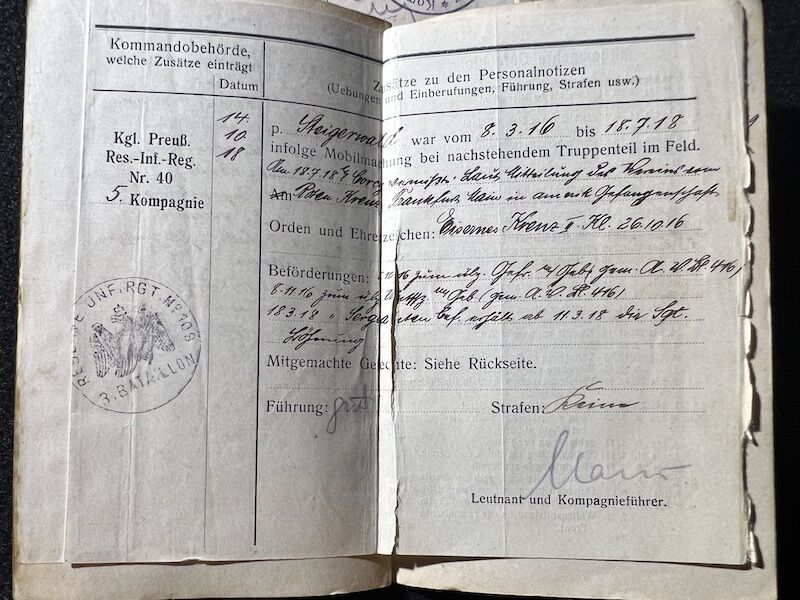 Kommandobehörde,
welche Zusätze einträgt
Datum
Zusätze zu den Personalnotizen
(Uebungen und Einberufungen, Führung, Strafen usw.)
14.
10.
18
Kgl. Preuß.
Res.-Inf.-Reg.
Nr. 40
5. Kompagnie
p. Steigerwald war vom 8.3.16 bis 18.7.18
infolge Mobilmachung bei nachstehendem Truppenteil im Feld.
Am 18.7.18 b/ Corcy vermißt. Laut Mitteilung des Vereins vom
Roten Kreuz Frankfurt Main in amerik. Gefangenschaft
Orden und Ehrenzeichen: Eisernes Kreuz II. Kl. 26.10.16
Beförderungen: 10.16 zum überz. Gefr. o/ Geb. gem. A.V.Bl. 416)
8.11.16 zum überz. Geb. (gem. A.V.Bl. 416)
18.3.18 " Sergeanten bef. erhält ab 11.3.18 die Sgt.
Löhnung
Mitgemachte Gefechte: Siehe Rückseite.
Führung: gut Strafen: Keine
Leutnant und Kompagnieführer.
RESERVE INF. RGT. No 109
3. BATAILLON